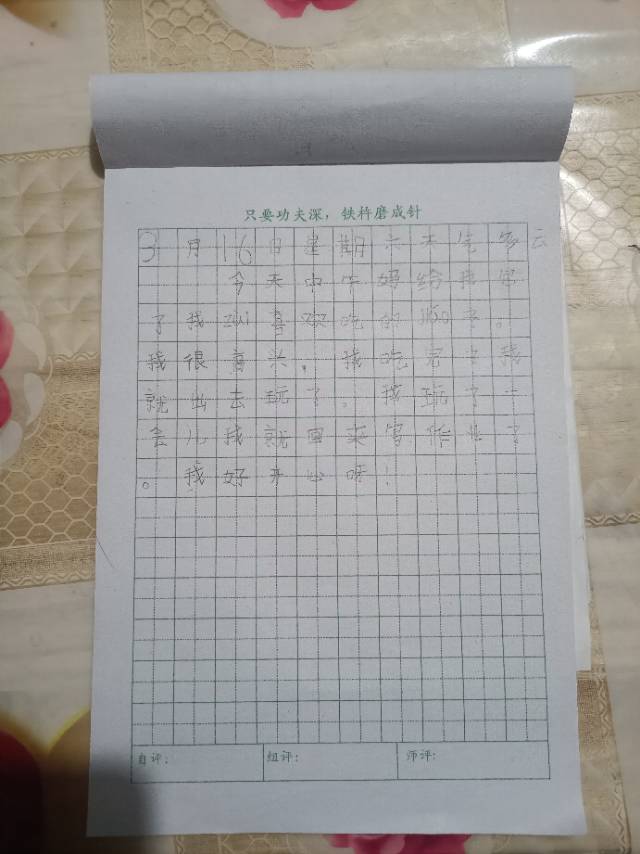 只要功夫深，铁杵磨成针
3月16日星期六天气多云
今天中午妈给我
了我喜欢吃的子。
我很高兴，我吃完了我
就出去玩了。我玩了一
会儿我就回来写作业了
。我好开心呀！
自评： 组评： 师评：